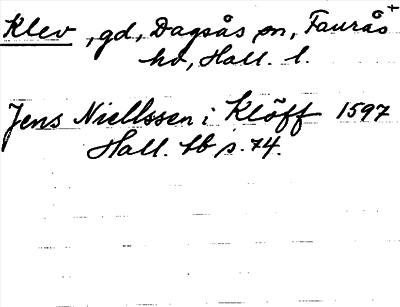 Klev, gd, Dagsås sn, Faurås +
hd, Hall. l.
Jens Niellssen i Klöff 1597
Hall. bb s. 74.